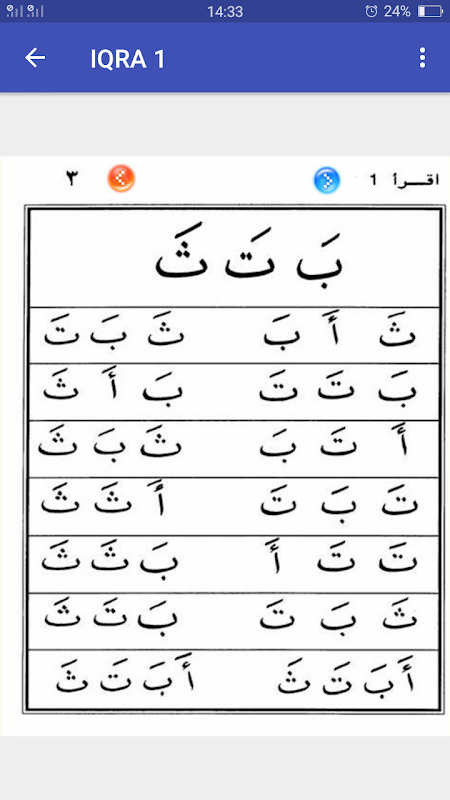 14:33 24%
IQRA 1
اقـرأ 1 ٣
بَ تَ ثَ
ثَ أَ بَ ثَ بَ تَ
بَ تَ تَ بَ أَ ثَ
أَ تَ بَ ثَ بَ ثَ
تَ بَ تَ أَ ثَ ثَ
تَ تَ أَ بَ ثَ ثَ
ثَ بَ تَ بَ تَ ثَ
أَ بَ تَ ثَ أَ بَ تَ ثَ